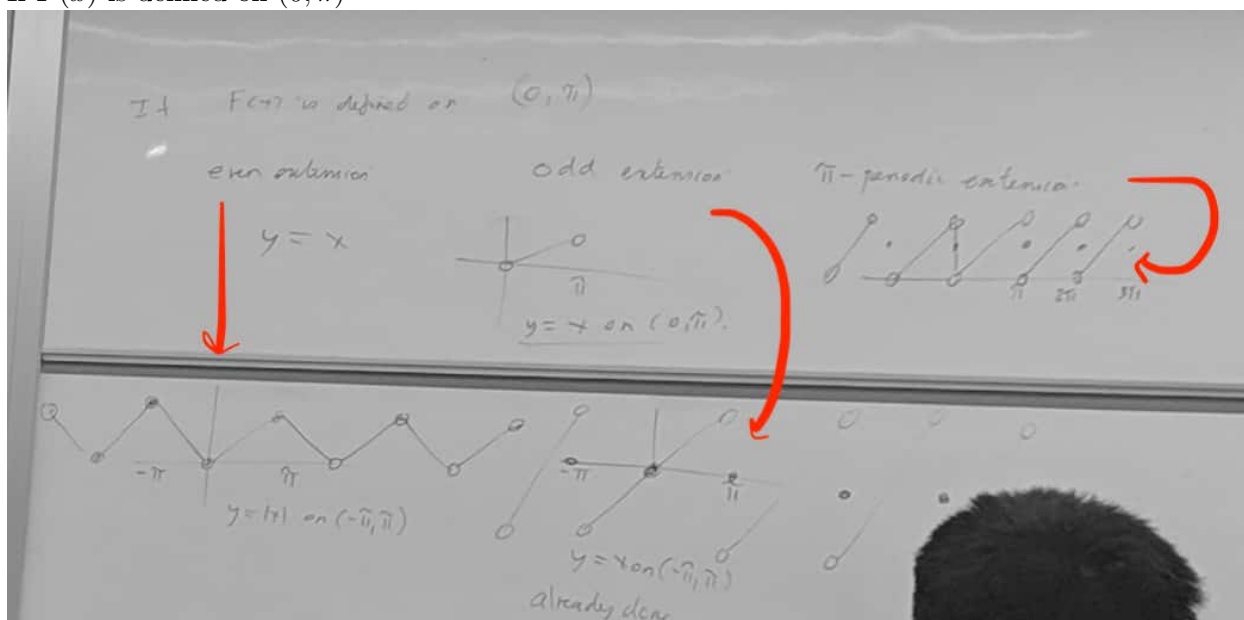 If F(x) is defined on (0, π)
even extension
odd extension
π-periodic extension
y = x
π
y = x on (0, π).
π 2π 3π
-π π
y = |x| on (-π, π)
-π π
y = x on (-π, π)
already done